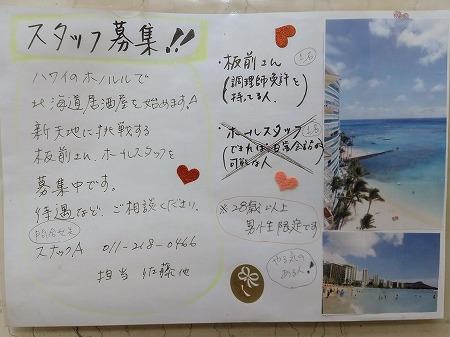 スタッフ募集!!
ハワイのホノルルで
北海道居酒屋を始めます。
新天地に挑戦する
板前さん、ホールスタッフを
募集中です。
待遇など、ご相談ください。
問合せ先
スナックA 011-218-0466
担当 佐藤
・板前さん
(調理師免許を
持ってる人)
・ホールスタッフ
(できれば日常会話の
可能な人)
※28歳以上
男性限定です
やる気の
ある人!